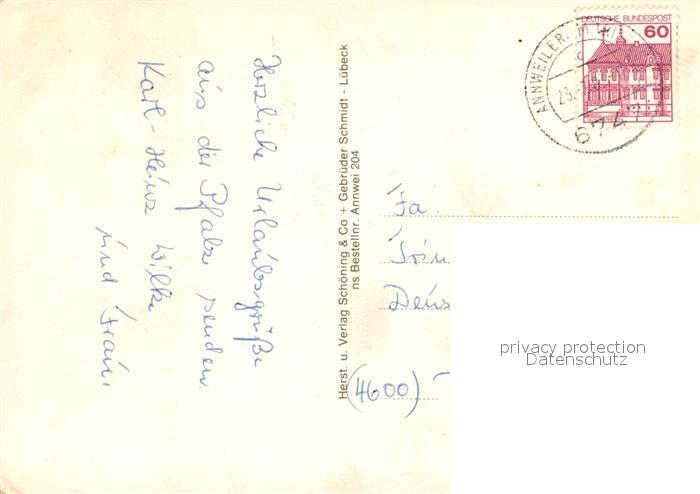 Herzliche Urlaubsgrüße
aus der Pfalz senden
Karl-Heinz Wilke
und Frau.
Herst. u. Verlag Schöning & Co + Gebrüder Schmidt - Lübeck
ns Bestellnr. Annwei 204
DEUTSCHE BUNDESPOST
60
ANNWEILER
6747
Fa.
(4600)
privacy protection
Datenschutz